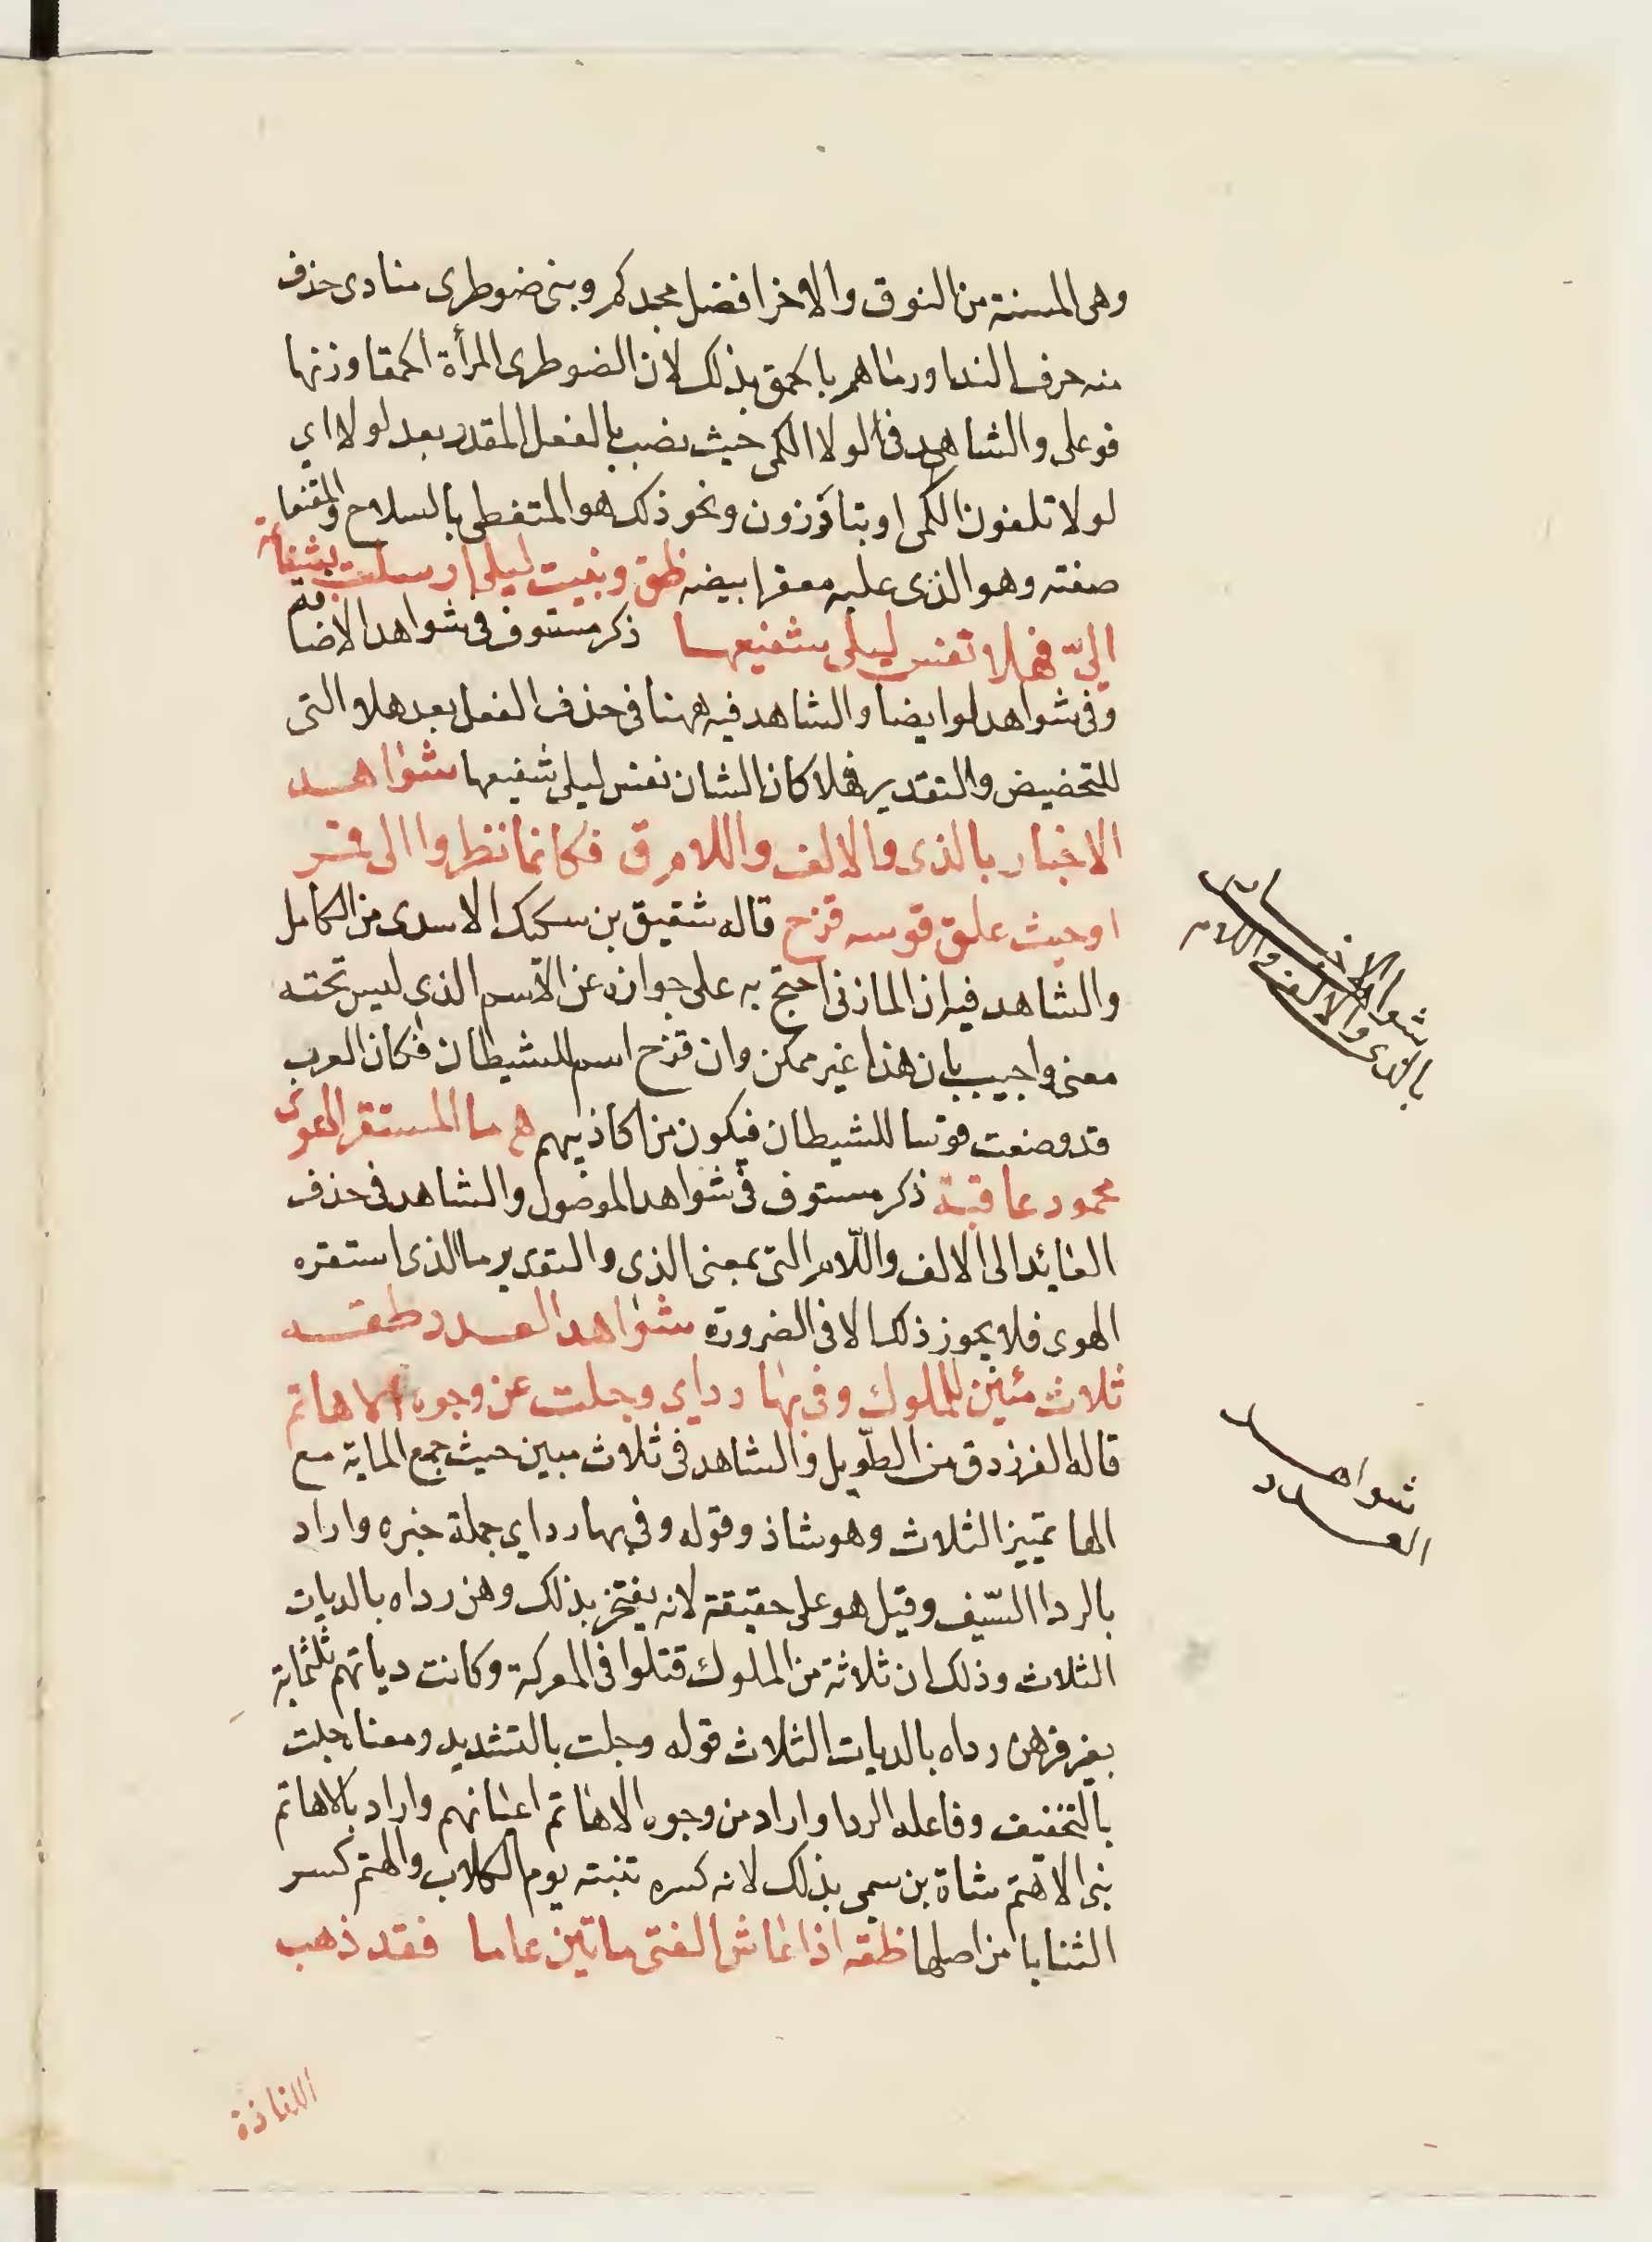 وهى المسنة من النوق والاخر افضل مجدكم وبنى ضوطرى منادى حذف
منه حرف الندا ورماهم بالحمق بذلك لان الضوطرى المرأة الحمقا وزنها
فوعلى والشاهد فى لولا الكمى حيث نصب بالفعل المقدر بعد لولا اى
لولا تلفون الكمى او تبارزون ونحو ذلك هو المتغطى بالسلاح والمقنعا
صفته وهو الذى عليه مغفر ابيضه ظق ونبيت ليلى ارسلت بشفاعة
الىّ فهلا نفس ليلى شفيعها ذكر مستوفى فى شواهد الاضافة
وفى شواهد لو ايضا والشاهد فيه ههنا فى حذف الفعل بعد هلا والتى
للتحضيض والتقدير فهلا كان الشان نفس ليلى شفيعها شواهد
الاخبار بالذى والالف واللام ق فكانما نظروا الى قمر
او حيث علق قوسه قزح قاله شقيق بن سليك الاسدى من الكامل
والشاهد فيه ان المازنى احتج به على جوازه عن الاسم الذى ليس تحته
معنى واجيب بان هذا غير ممكن وان قزح اسم للشيطان فكان العرب
قد وضعت قوسا للشيطان فيكون من اكاذيبهم ه ما المستفز الهوى
محمود عاقبة ذكر مستوفى فى شواهد الموصول والشاهد فى حذف
العايد الى الالف واللّام التى بمعنى الذى والتقدير ما الذى استفزه
الهوى فلا يجوز ذلك الا فى الضرورة شواهد العدد طقه
ثلاث مئين للملوك وفى بها رداى وجلت عن وجوه الاهاتم
قاله الفرزدق من الطّويل والشاهد فى ثلاث مبين حيث جمع الماية مع
الها تمييز الثلاث وهو شاذ وقوله وفى بها رداى جملة خبره واراد
بالردا السّيف وقيل هو على حقيقة لانه يفتخر بذلك وهن رداه بالديات
الثلاث وذلك ان ثلاثة من الملوك قتلوا فى المعركة وكانت دياتهم ثلثماية
بعير فرهن رداه بالديات الثلاث قوله وجلت بالتشديد ومعناه جلت
بالتخفيف وفاعله الردا واراد من وجوه الاهاتم اعيانهم واراد بالاهاتم
بنى الاهتم شاة بن سمى بذلك لانه كسره ثنيته يوم الكلاب والهتم كسر
الثنايا من اصلها ظقه اذا عاش الفتى ماتين عاما فقد ذهب
اللذاذة
شواهد الاخبار
بالذى والالف واللام
شواهد
العدد